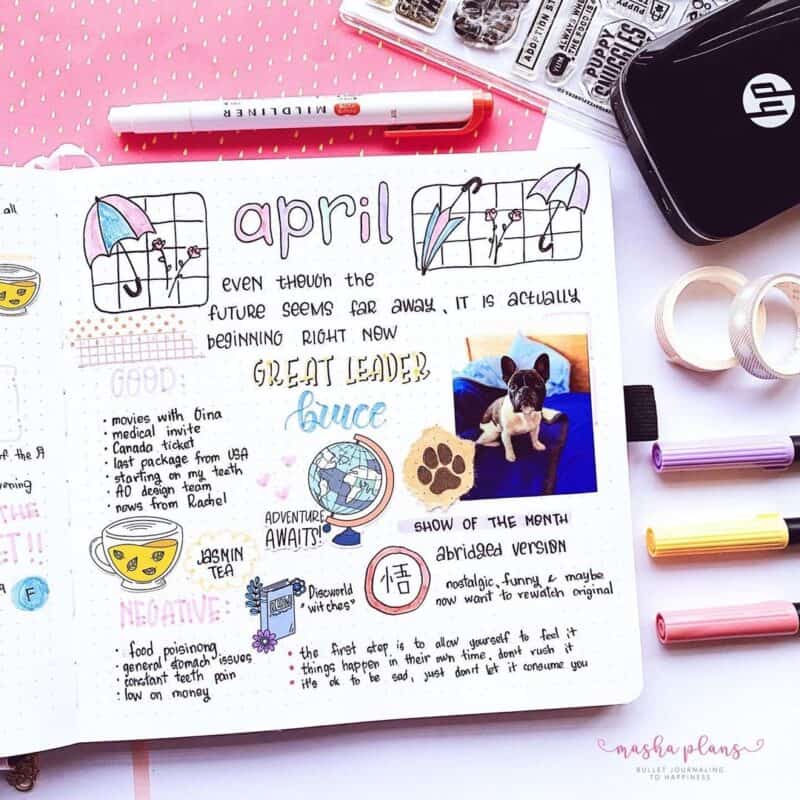 MILDLINER
ADOPTION ST
PUPPY
SNUGGLES
hp
all
april
EVEN THOUGH THE
FUTURE SEEMS FAR AWAY, IT IS ACTUALLY
BEGINNING RIGHT NOW
GREAT LEADER
bruce
GOOD:
• movies with Gina
• medical invite
• Canada ticket
• last package from USA
• starting on my teeth
• AD design team
• news from Rachel
ADVENTURE
AWAITS!
SHOW OF THE MONTH
abridged version
nostalgic, funny & maybe
now want to rewatch original
悟
JASMIN
TEA
Discworld
"witches"
NEGATIVE:
• food poisinong
• general stomach issues
• constant teeth pain
• low on money
• the first step is to allow yourself to feel it
• things happen in their own time, don't rush it
• it's ok to be sad, just don't let it consume you
of the Я
vening
THE
ET!!
F
masha plans
BULLET JOURNALING
TO HAPPINESS